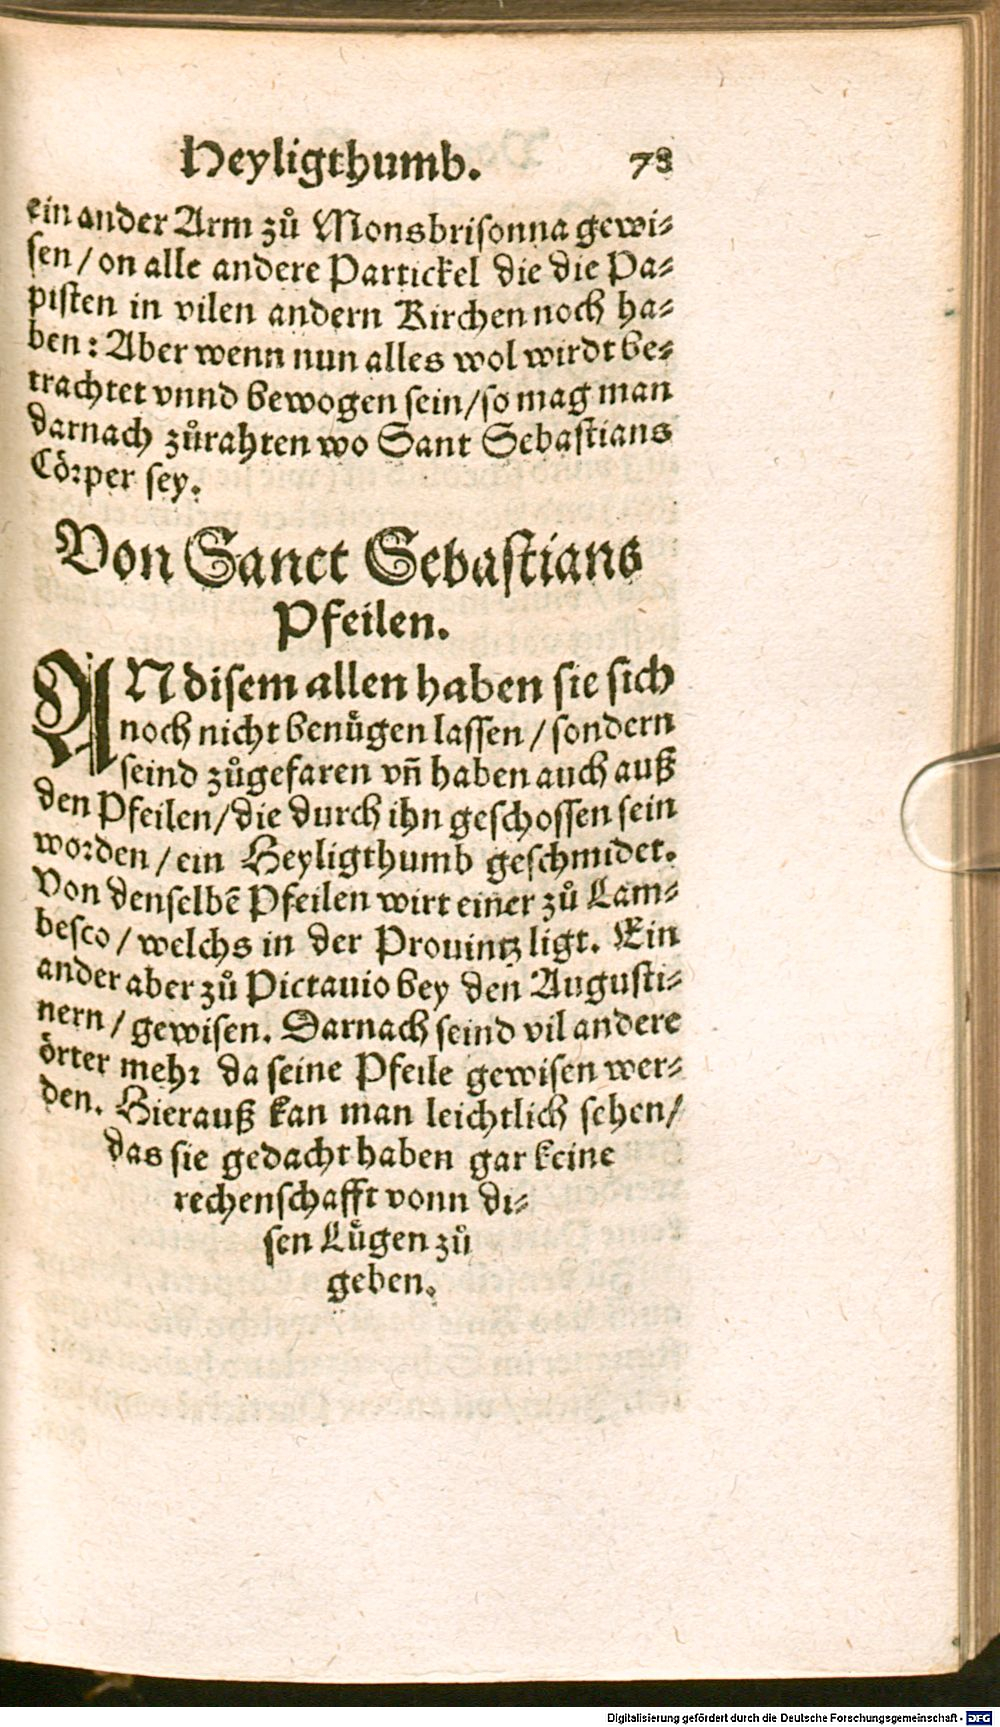 Heyligthumb. 73
ein ander Arm zů Monsbrisonna gewi⸗
sen / on alle andere Partickel die die Pa⸗
pisten in vilen andern Kirchen noch ha⸗
ben: Aber wenn nun alles wol wirdt be⸗
trachtet vnnd bewogen sein / so mag man
darnach zůrahten wo Sant Sebastians
Cörper sey.
Von Sanct Sebastians
Pfeilen.
AN disem allen haben sie sich
noch nicht benůgen lassen / sondern
seind zůgefaren vñ haben auch auß
den Pfeilen / die durch ihn geschossen sein
worden / ein Heyligthumb geschmidet.
Von denselbē Pfeilen wirt einer zů Lam⸗
besco / welchs in der Prouintz ligt. Ein
ander aber zů Pictauio bey den Augusti⸗
nern / gewisen. Darnach seind vil andere
örter mehr da seine Pfeile gewisen wer⸗
den. Hierauß kan man leichtlich sehen /
das sie gedacht haben gar keine
rechenschafft vonn di⸗
sen Lügen zů
geben.
Digitalisierung gefördert durch die Deutsche Forschungsgemeinschaft - DFG